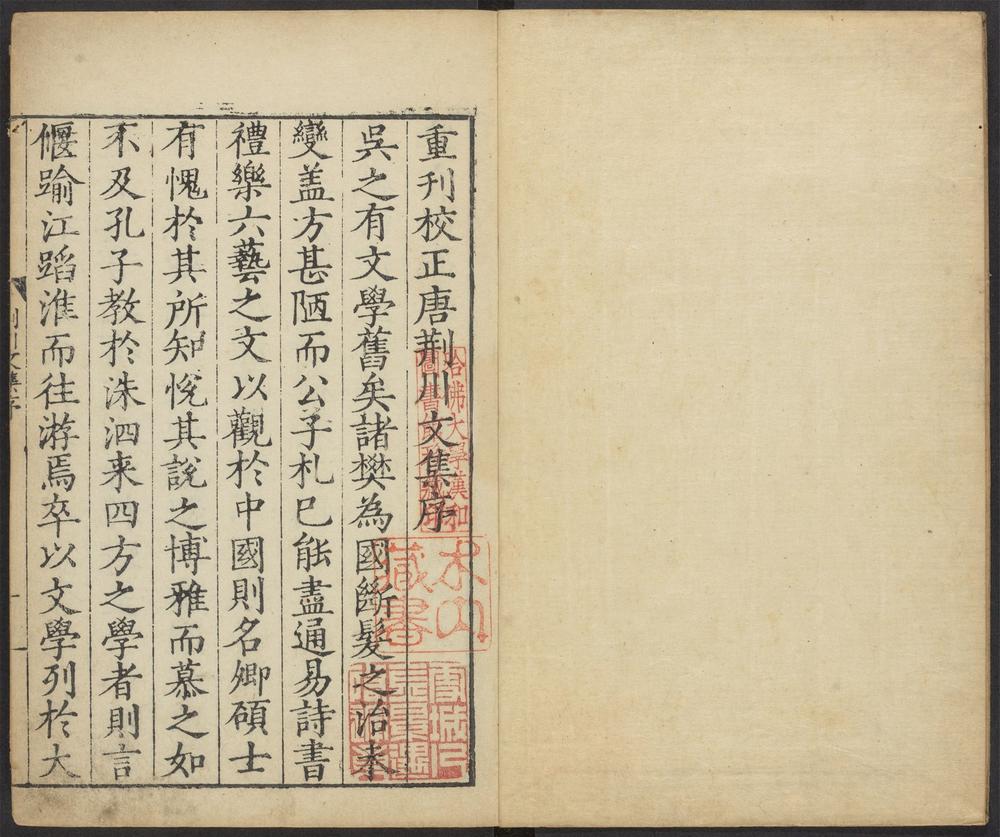 重刊校正唐荆川文集序
吳之有文學舊矣諸樊為國斷髮之治未
變盖方甚陋而公子札已能盡通易詩書
禮樂六藝之文以觀於中國則名卿碩士
有愧於其所知悅其說之博雅而慕之如
不及孔子教於洙泗来四方之學者則言
偃踰江蹈淮而往游焉卒以文學列於大
荆川文集序
一
哈佛大學漢和
圖書館珍藏印
木山
藏書